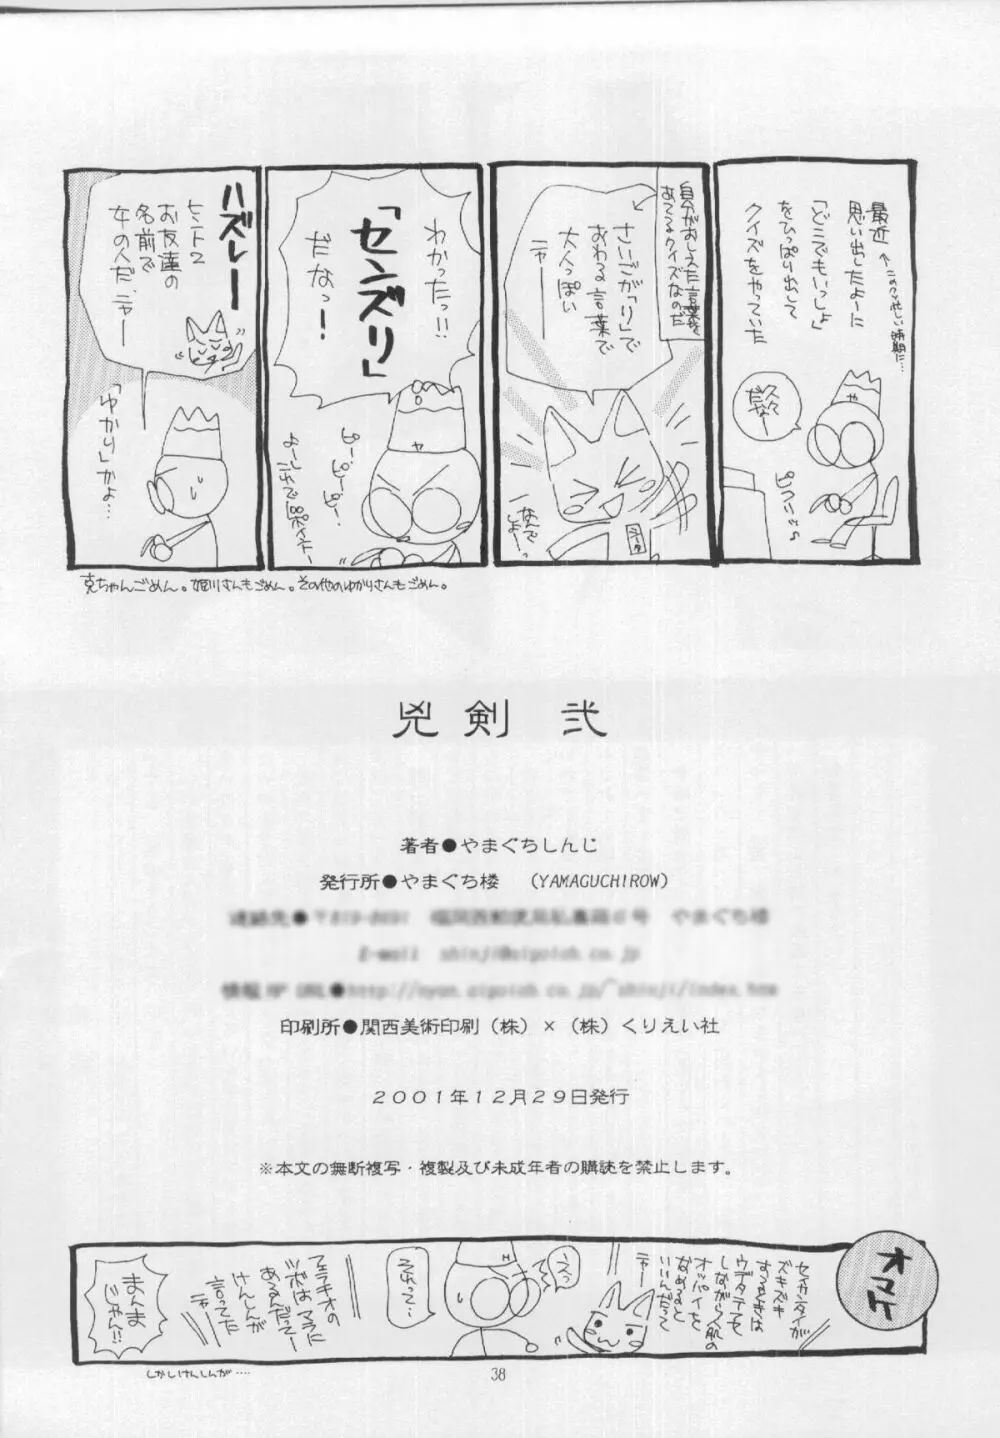 最近
思い出したよーに
「どこでもいっしょ」
をひっぱり出して
クイズをやっていた
↑このクソ忙しい時期に…
久々
だなー
や
自分がおしえた言葉を
あてるクイズなのだ
さいごが「り」で
おわる言葉で
大人っぽい
ニャー
なんでしょー
わかったっ!!
「センズリ」
だなっー!
や
ハズレー
ヒント2
お友達の
名前で
女の人だ、ニャー
「ゆかり」かよ…
克ちゃんごめん。姫川さんもごめん。その他のゆかりさんもごめん。
兇剣 弐
著者●やまぐちしんじ
発行所●やまぐち楼 （YAMAGUCHIROW）
印刷所●関西美術印刷（株）×（株）くりえい社
2001年12月29日発行
※本文の無断複写・複製及び未成年者の購読を禁止します。
オマケ
セイカンタイが
ズキズキ
しながら人肌の
オッパイを
なめると
いいんだって
ニャー
えっ
それって…
けんしんが
言ってた
ニャー
まんま
じゃん!!
しかしけんしんが….
38